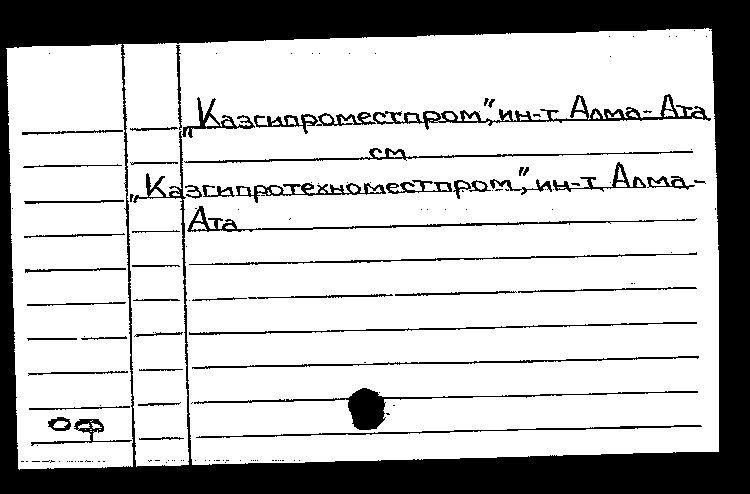 „Казгипроместпром”, ин-т. Алма-Ата
см.
„Казгипротехноместпром”, ин-т. Алма-
Ата
оф